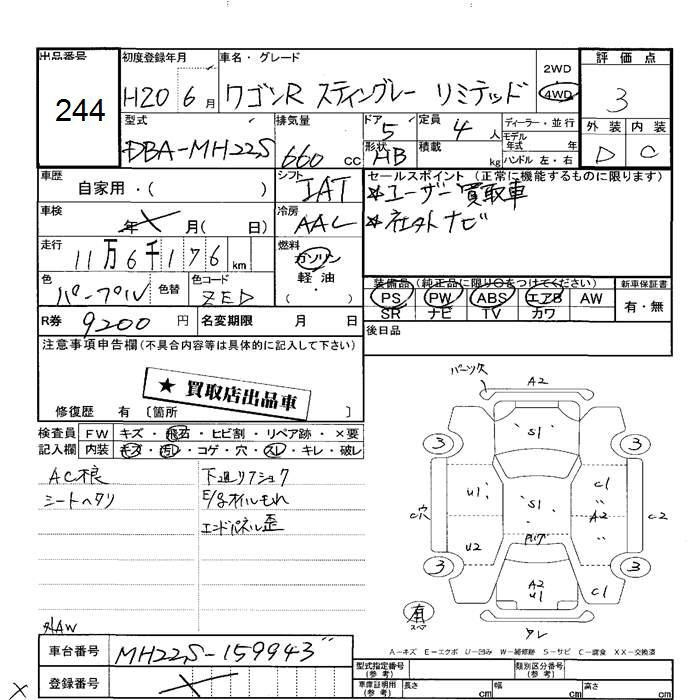 出品番号
244
初度登録年月
H20 6月
車名・グレード
ワゴンR スティングレー リミテッド
2WD
4WD
評価点
3
外装 内装
D C
型式
DBA-MH22S
排気量
660 cc
ドア 5
形状 HB
定員 4 人
積載 kg
ディーラー・並行
モデル年式 年
ハンドル 左・右
車歴
自家用・( )
シフト
IAT
セールスポイント (正常に機能するものに限ります)
☆ユーザー買取車
☆社外ナビ
車検
年 月( 日)
冷房
AAC
走行
11万6千176 km
燃料
ガソリン
軽油
( )
色
パープル
色替
色コード
ZED
装備品(純正品に限り○をつけてください)
PS PW ABS エアB AW
SR ナビ TV カワ
新車保証書
有・無
R券 9200 円
名変期限 月 日
後日品
注意事項申告欄(不具合内容等は具体的に記入して下さい)
★ 買取店出品車
修復歴 有 〔箇所 〕
検査員記入欄
FW キズ・飛石・ヒビ割・リペア跡・×要
内装 キズ・汚レ・コゲ・穴・スレ・キレ・破レ
AC根
シートヘタリ
下廻りサショウ
E/gオイルもれ
エンドパネル歪
外AW
パーツ欠
A2
S1
3 3
U1 S1 C1
〃
C穴 A2 C2
U2 C1
3 3
A2
U1
有
スペア
ワレ
A=キズ E=エクボ U=凹み W=補修跡 S=サビ C=腐食 XX=交換済
車台番号
MH22S-159943〃
登録番号
型式指定番号(参考)
類別区分番号(参考)
車庫証明用(参考) 長さ cm 幅 cm 高さ cm
×